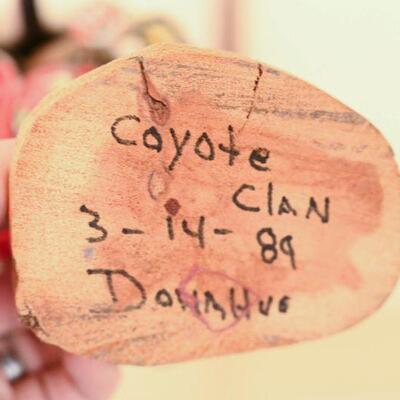 Coyote
Clan
3-14-89